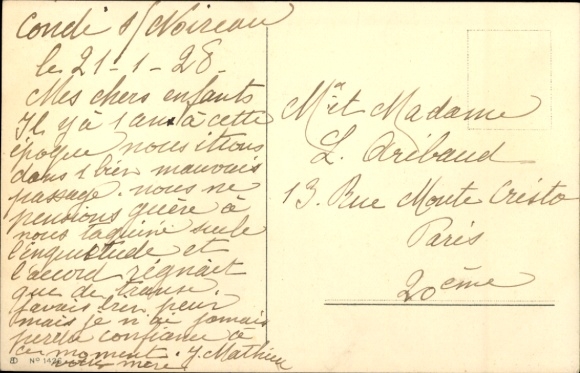 Condé s/ Noireau
le 21-1-28
Mes chers enfants
Il y a 1 an à cette
époque nous étions
dans 1 bien mauvais
passage. nous ne
pensions guère à
nous taquiner seule
l'inquiétude et
l'accord régnait
que de transe.
j'avais bien peur
mais je n'ai jamais
perdu confiance à
ce moment. J. Mathieu
votre mère
Nº 142
Mr et Madame
L. Aribaud
13 Rue Monte Cristo
Paris
20ème